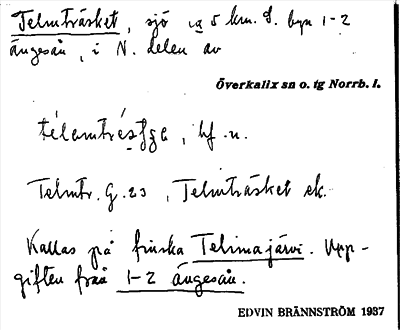 Telmträsket, sjö ca 5 km. S. byn 1-2
ängesån, i N. delen av
Överkalix sn o. tg Norrb. l.
hf. n.
Telmtr. G.23, Telmträsket ek.
Kallas på finska Telimajärvi. Upp-
giften från 1-2 ängesån.
EDVIN BRÄNNSTRÖM 1937